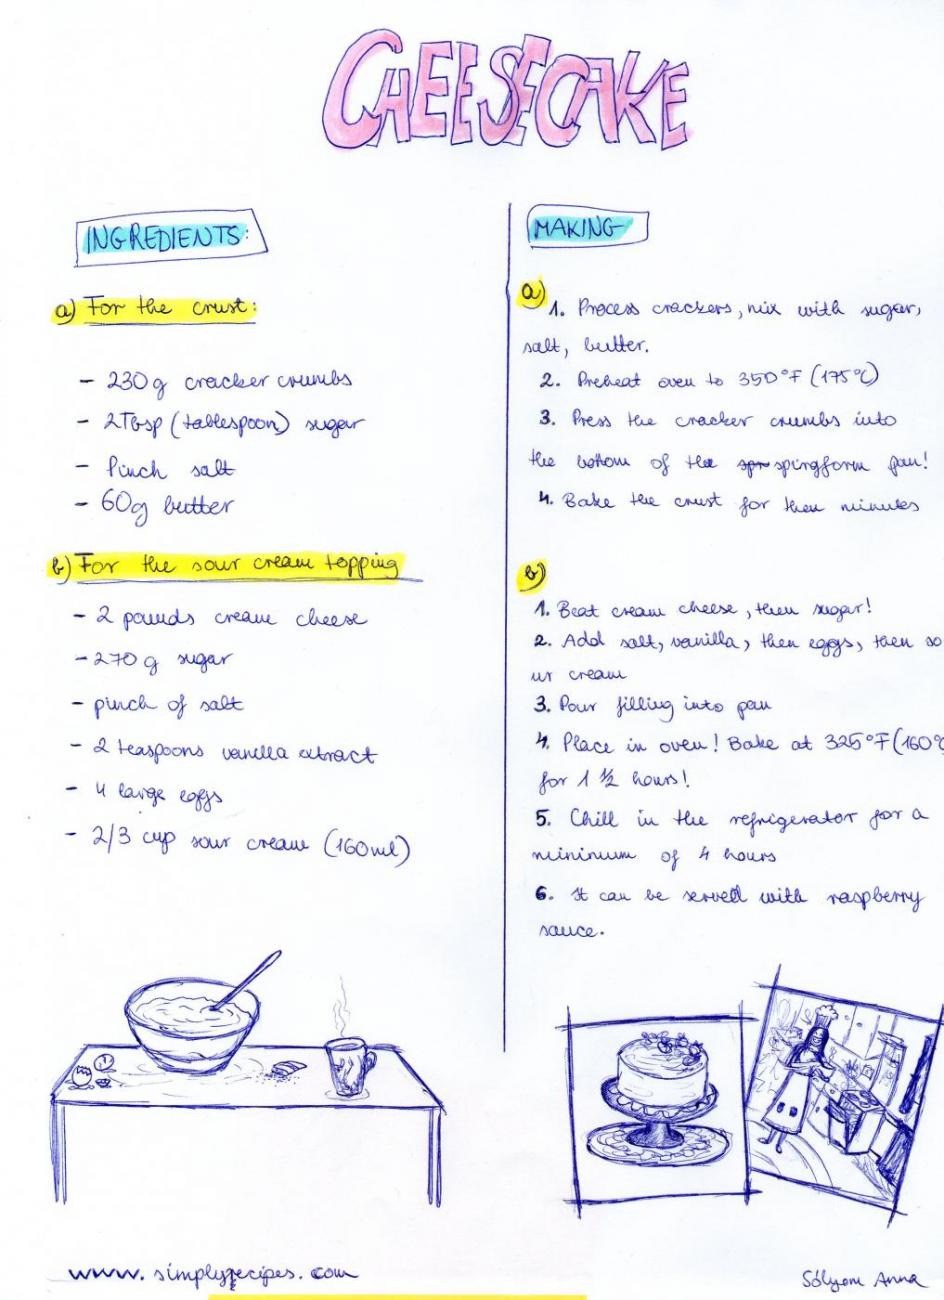 CHEESECAKE
INGREDIENTS:
a) For the crust:
- 230g cracker crumbs
- 2Tbsp (tablespoon) sugar
- Pinch salt
- 60g butter
b) For the sour cream topping
- 2 pounds cream cheese
- 270 g sugar
- pinch of salt
- 2 teaspoons vanilla extract
- 4 large eggs
- 2/3 cup sour cream (160ml)
MAKING
a)
1. Process crackers, mix with sugar,
salt, butter.
2. Preheat oven to 350°F (175°C)
3. Press the cracker crumbs into
the bottom of the spingform pan!
4. Bake the crust for then minutes
b)
1. Beat cream cheese, then sugar!
2. Add salt, vanilla, then eggs, then so
ur cream
3. Pour filling into pan
4. Place in oven! Bake at 325°F (160°C
for 1 1/2 hours!
5. Chill in the refrigerator for a
mininum of 4 hours
6. It can be served with raspberry
sauce.
www.simplyrecipes.com
Sólyom Anna